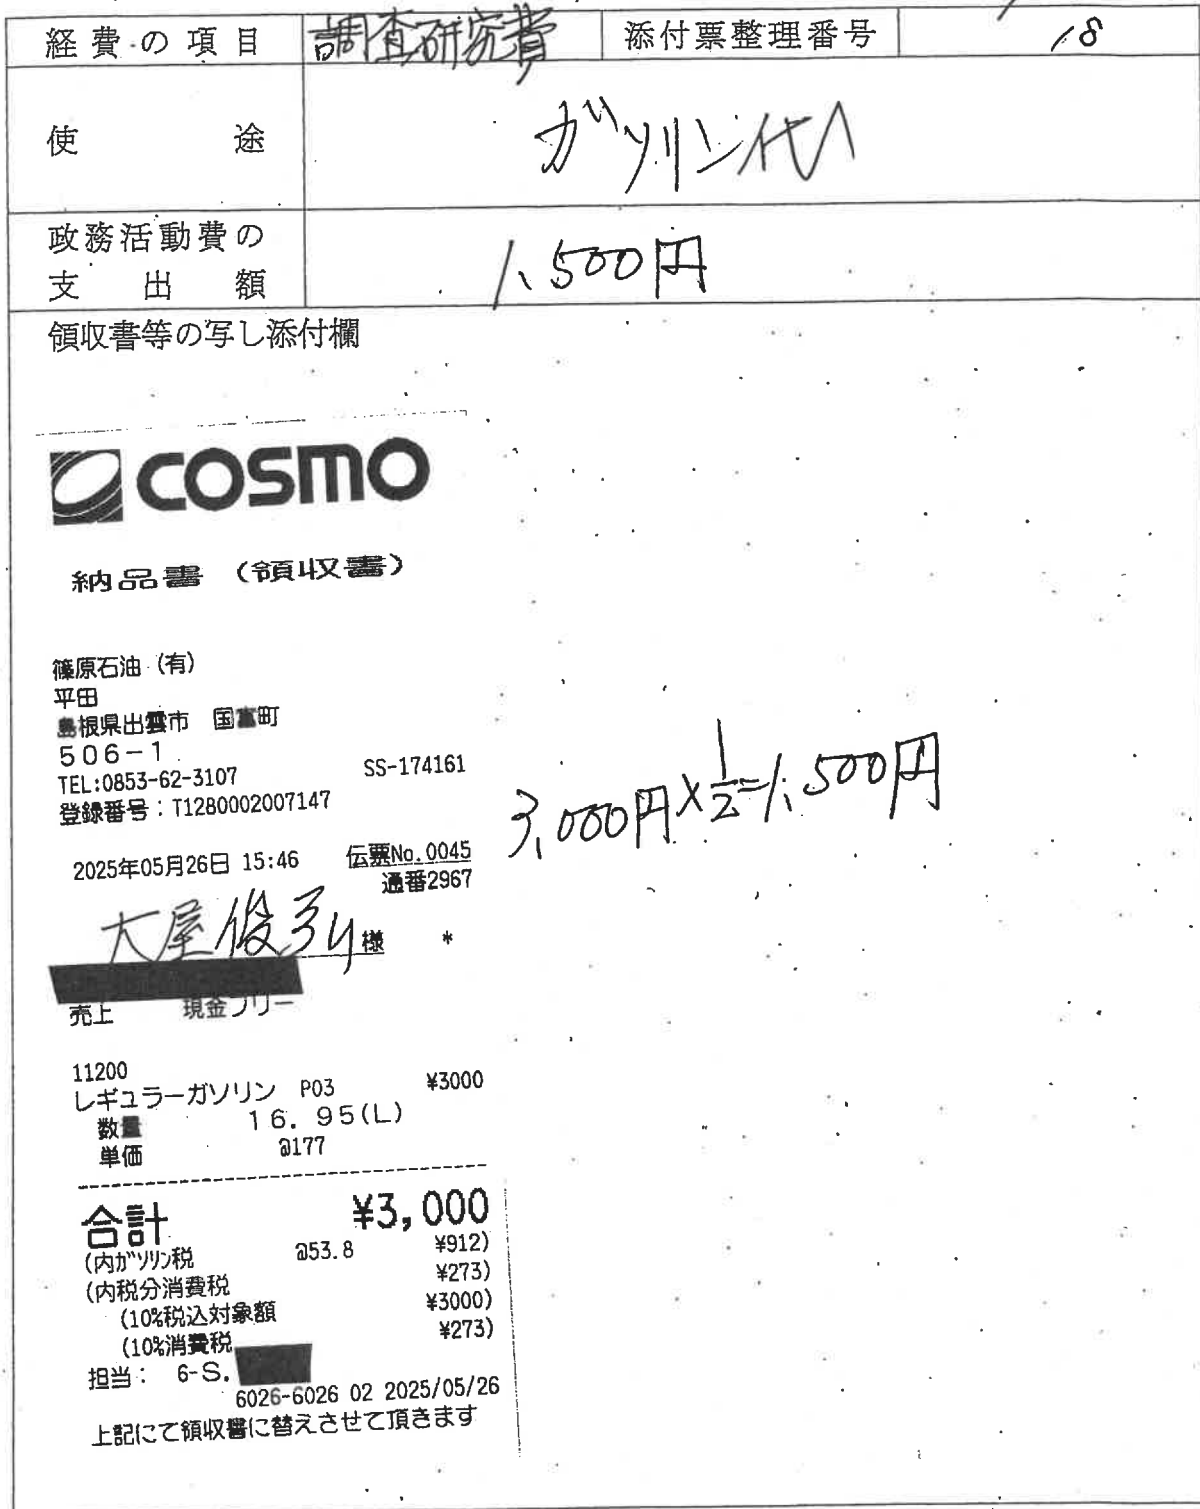 経費の項目 調査研究費 添付票整理番号 18
使途 ガソリン代
政務活動費の
支出額 1,500円
領収書等の写し添付欄
COSMO
納品書（領収書）
篠原石油（有）
平田
島根県出雲市 国富町
506-1
TEL:0853-62-3107 SS-174161
登録番号：T1280002007147
3,000円×1/2=1,500円
2025年05月26日 15:46 伝票No.0045
通番2967
大屋俊弘様 *
売上 現金フリー
11200
レギュラーガソリン P03 ¥3000
数量 16.95(L)
単価 @177
合計 ¥3,000
(内ガソリン税 @53.8 ¥912)
(内税分消費税 ¥273)
(10%税込対象額 ¥3000)
(10%消費税 ¥273)
担当： 6-S.
6026-6026 02 2025/05/26
上記にて領収書に替えさせて頂きます